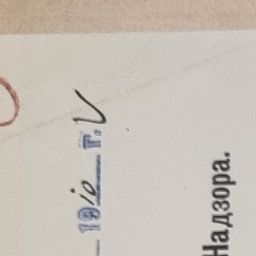 1910 г.
Надзора.